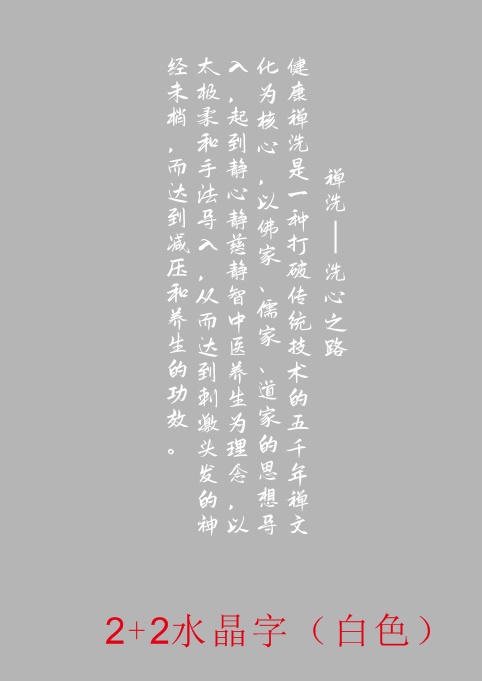 禅洗——洗心之路
健康禅洗是一种打破传统技术的五千年禅文
化为核心，以佛家、儒家、道家的思想导
入，起到静心静慈静智中医养生为理念，以
太极柔和手法导入，从而达到刺激头发的神
经未梢，而达到减压和养生的功效。
2+2水晶字（白色）